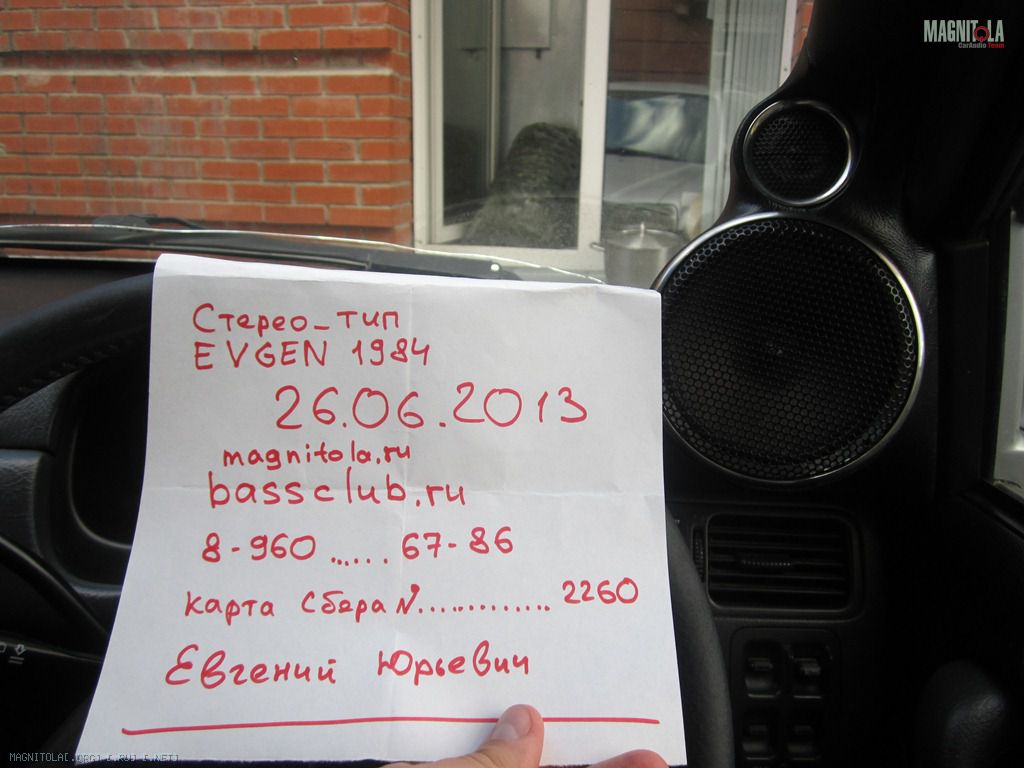 MAGNITOLA
CarAudio Team
Стерео_тип
EVGEN 1984
26.06.2013
magnitola.ru
bassclub.ru
8-960...... 67-86
карта Сбера №............. 2260
Евгений Юрьевич